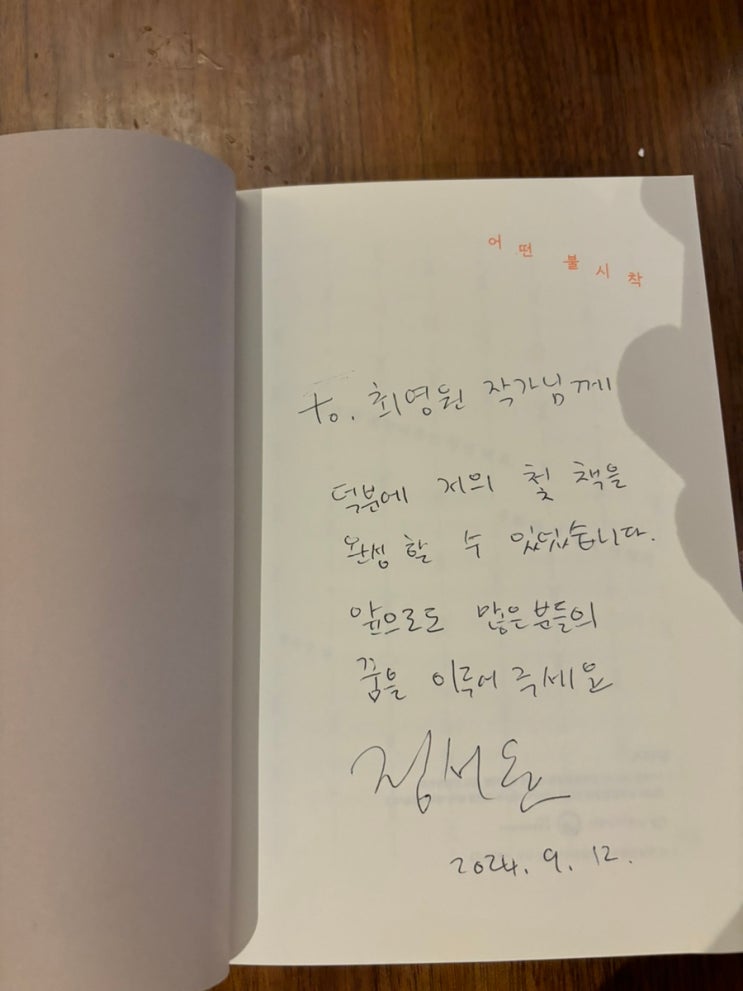 어떤 불시착
to. 최영원 작가님께
덕분에 저의 첫 책을
완성 할 수 있었습니다.
앞으로도 많은분들의
꿈을 이루어 주세요
2024. 9. 12.